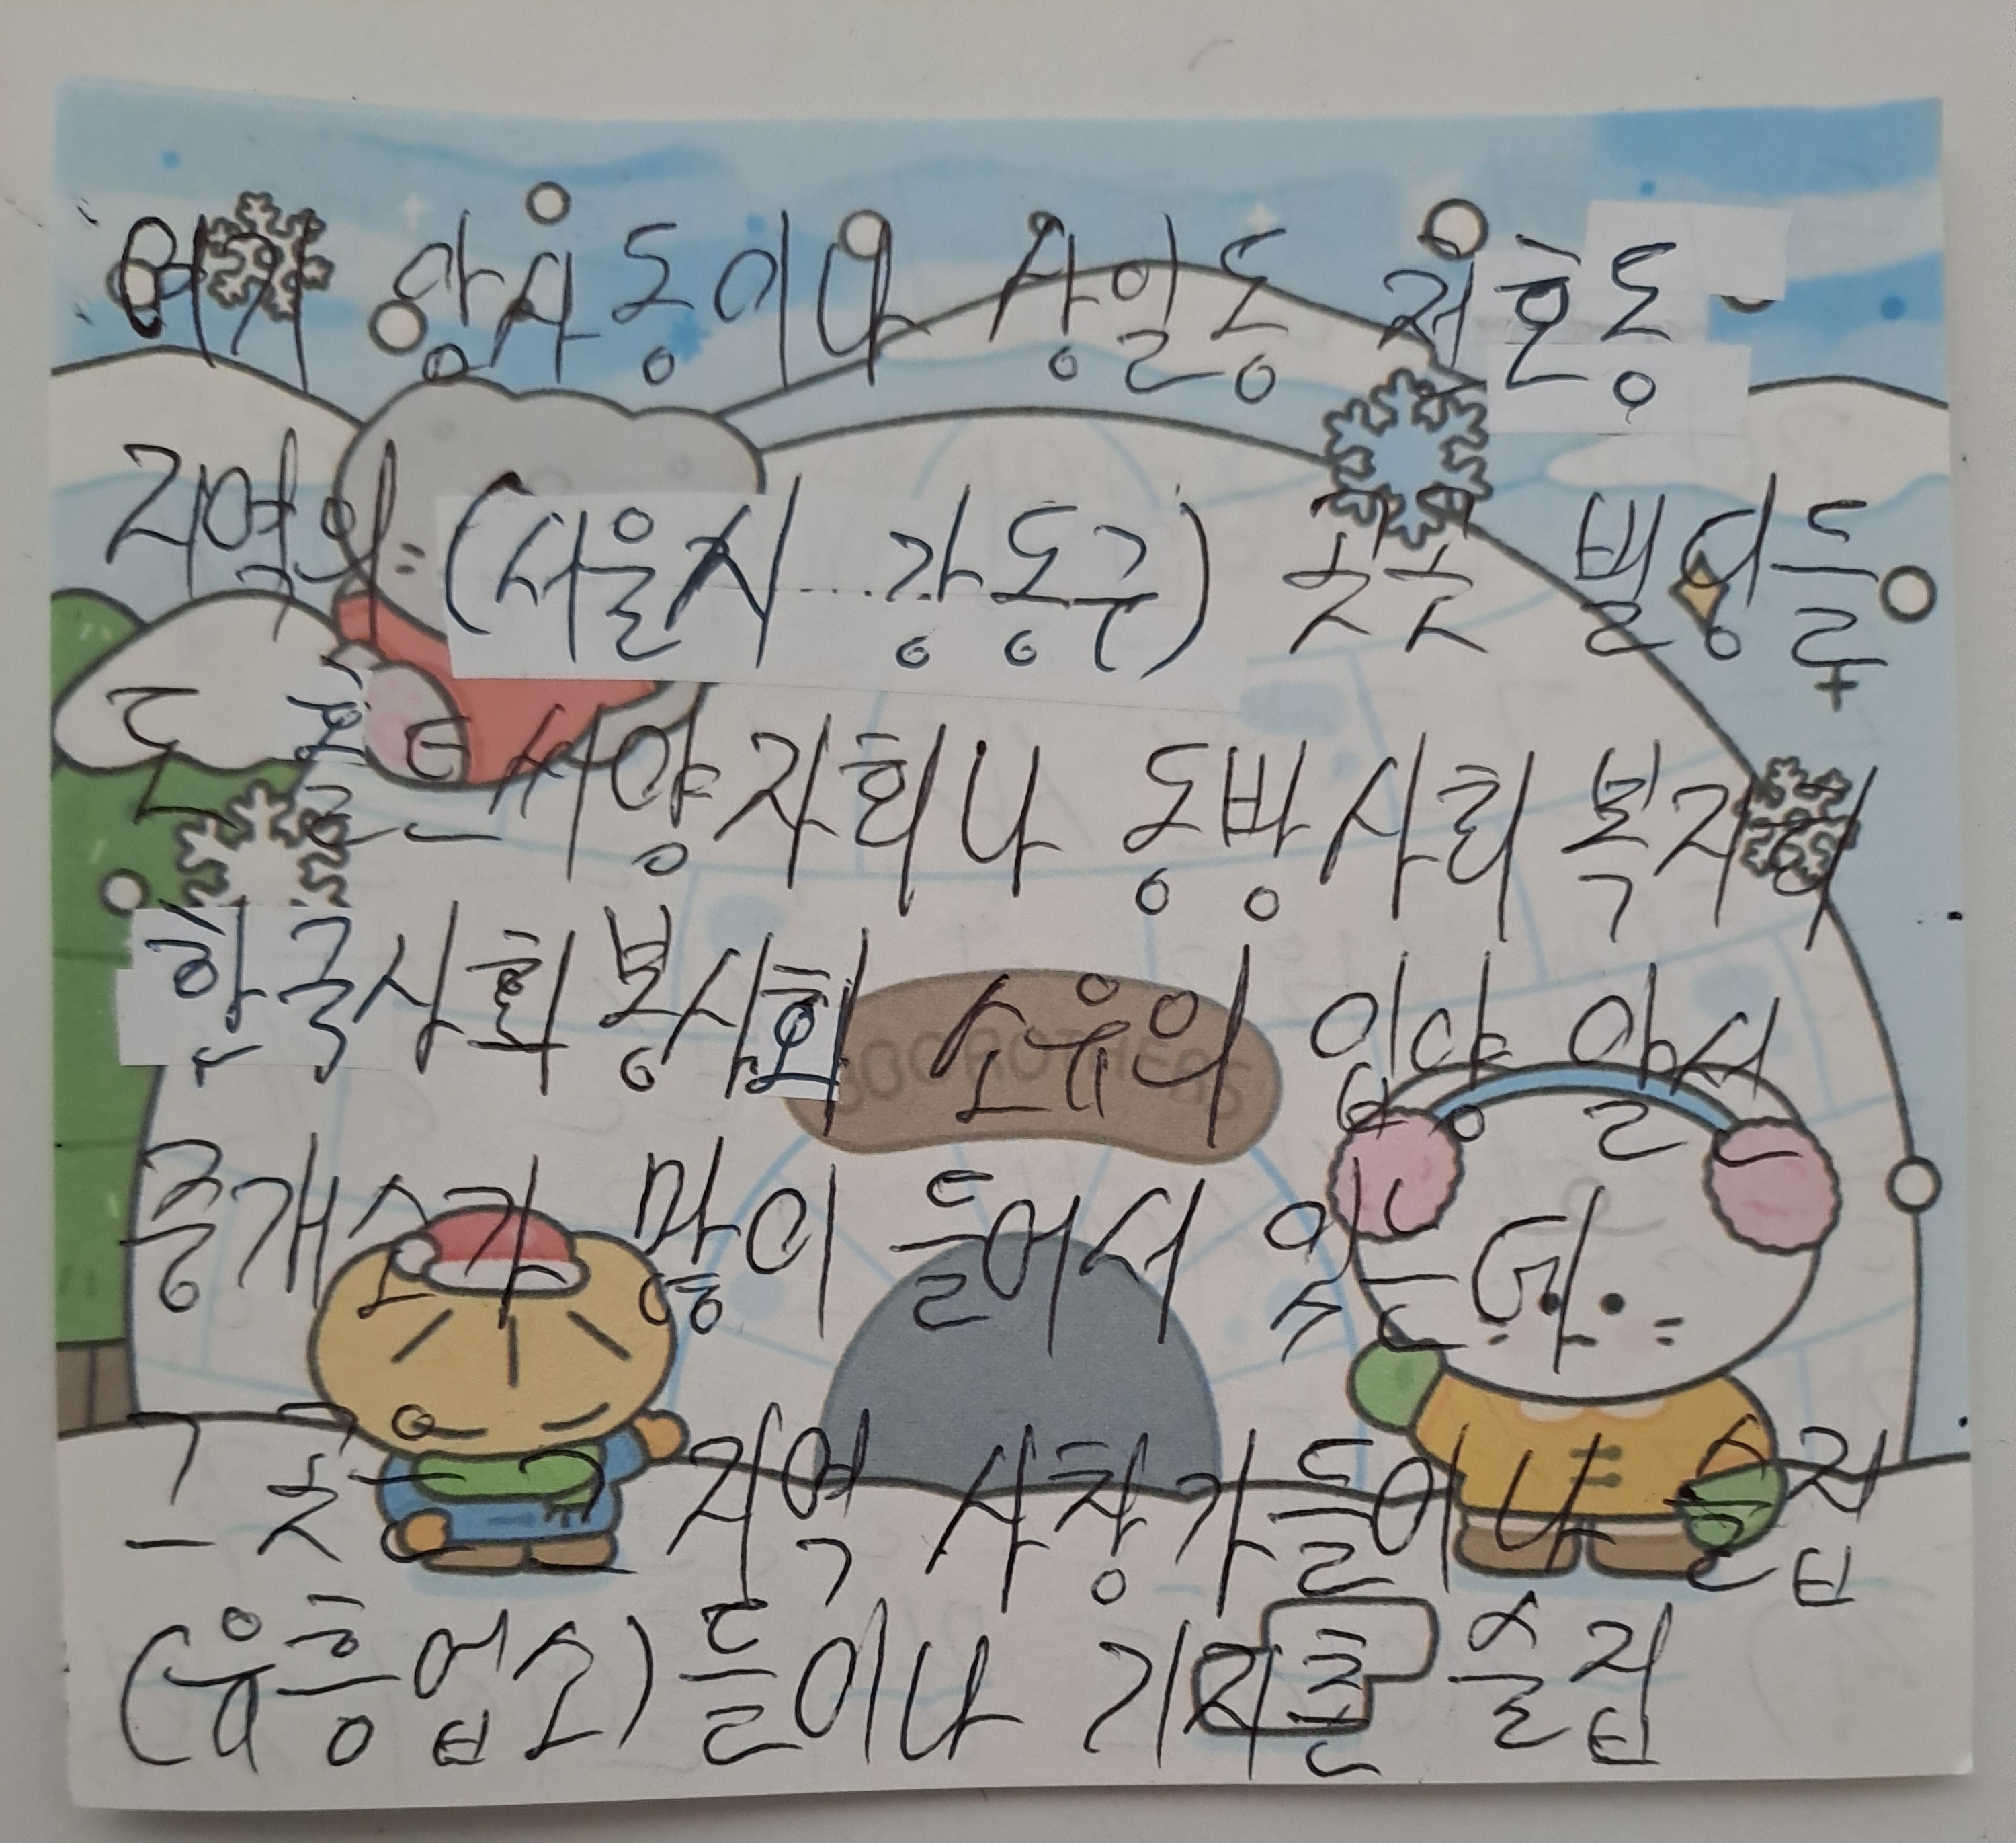 여기 암사동이나 상일동 저흔동
지역의 (서울시 강동구) 곳곳 빌딩들
도 홀트씨양자회나 동방사회복지회
한국사회봉사회 소유의 입양 알선
중개소가 많이 들어서 있는데
그 곳 지역 사창가들이나 술집
(유흥업소)들이나 기지촌 술집